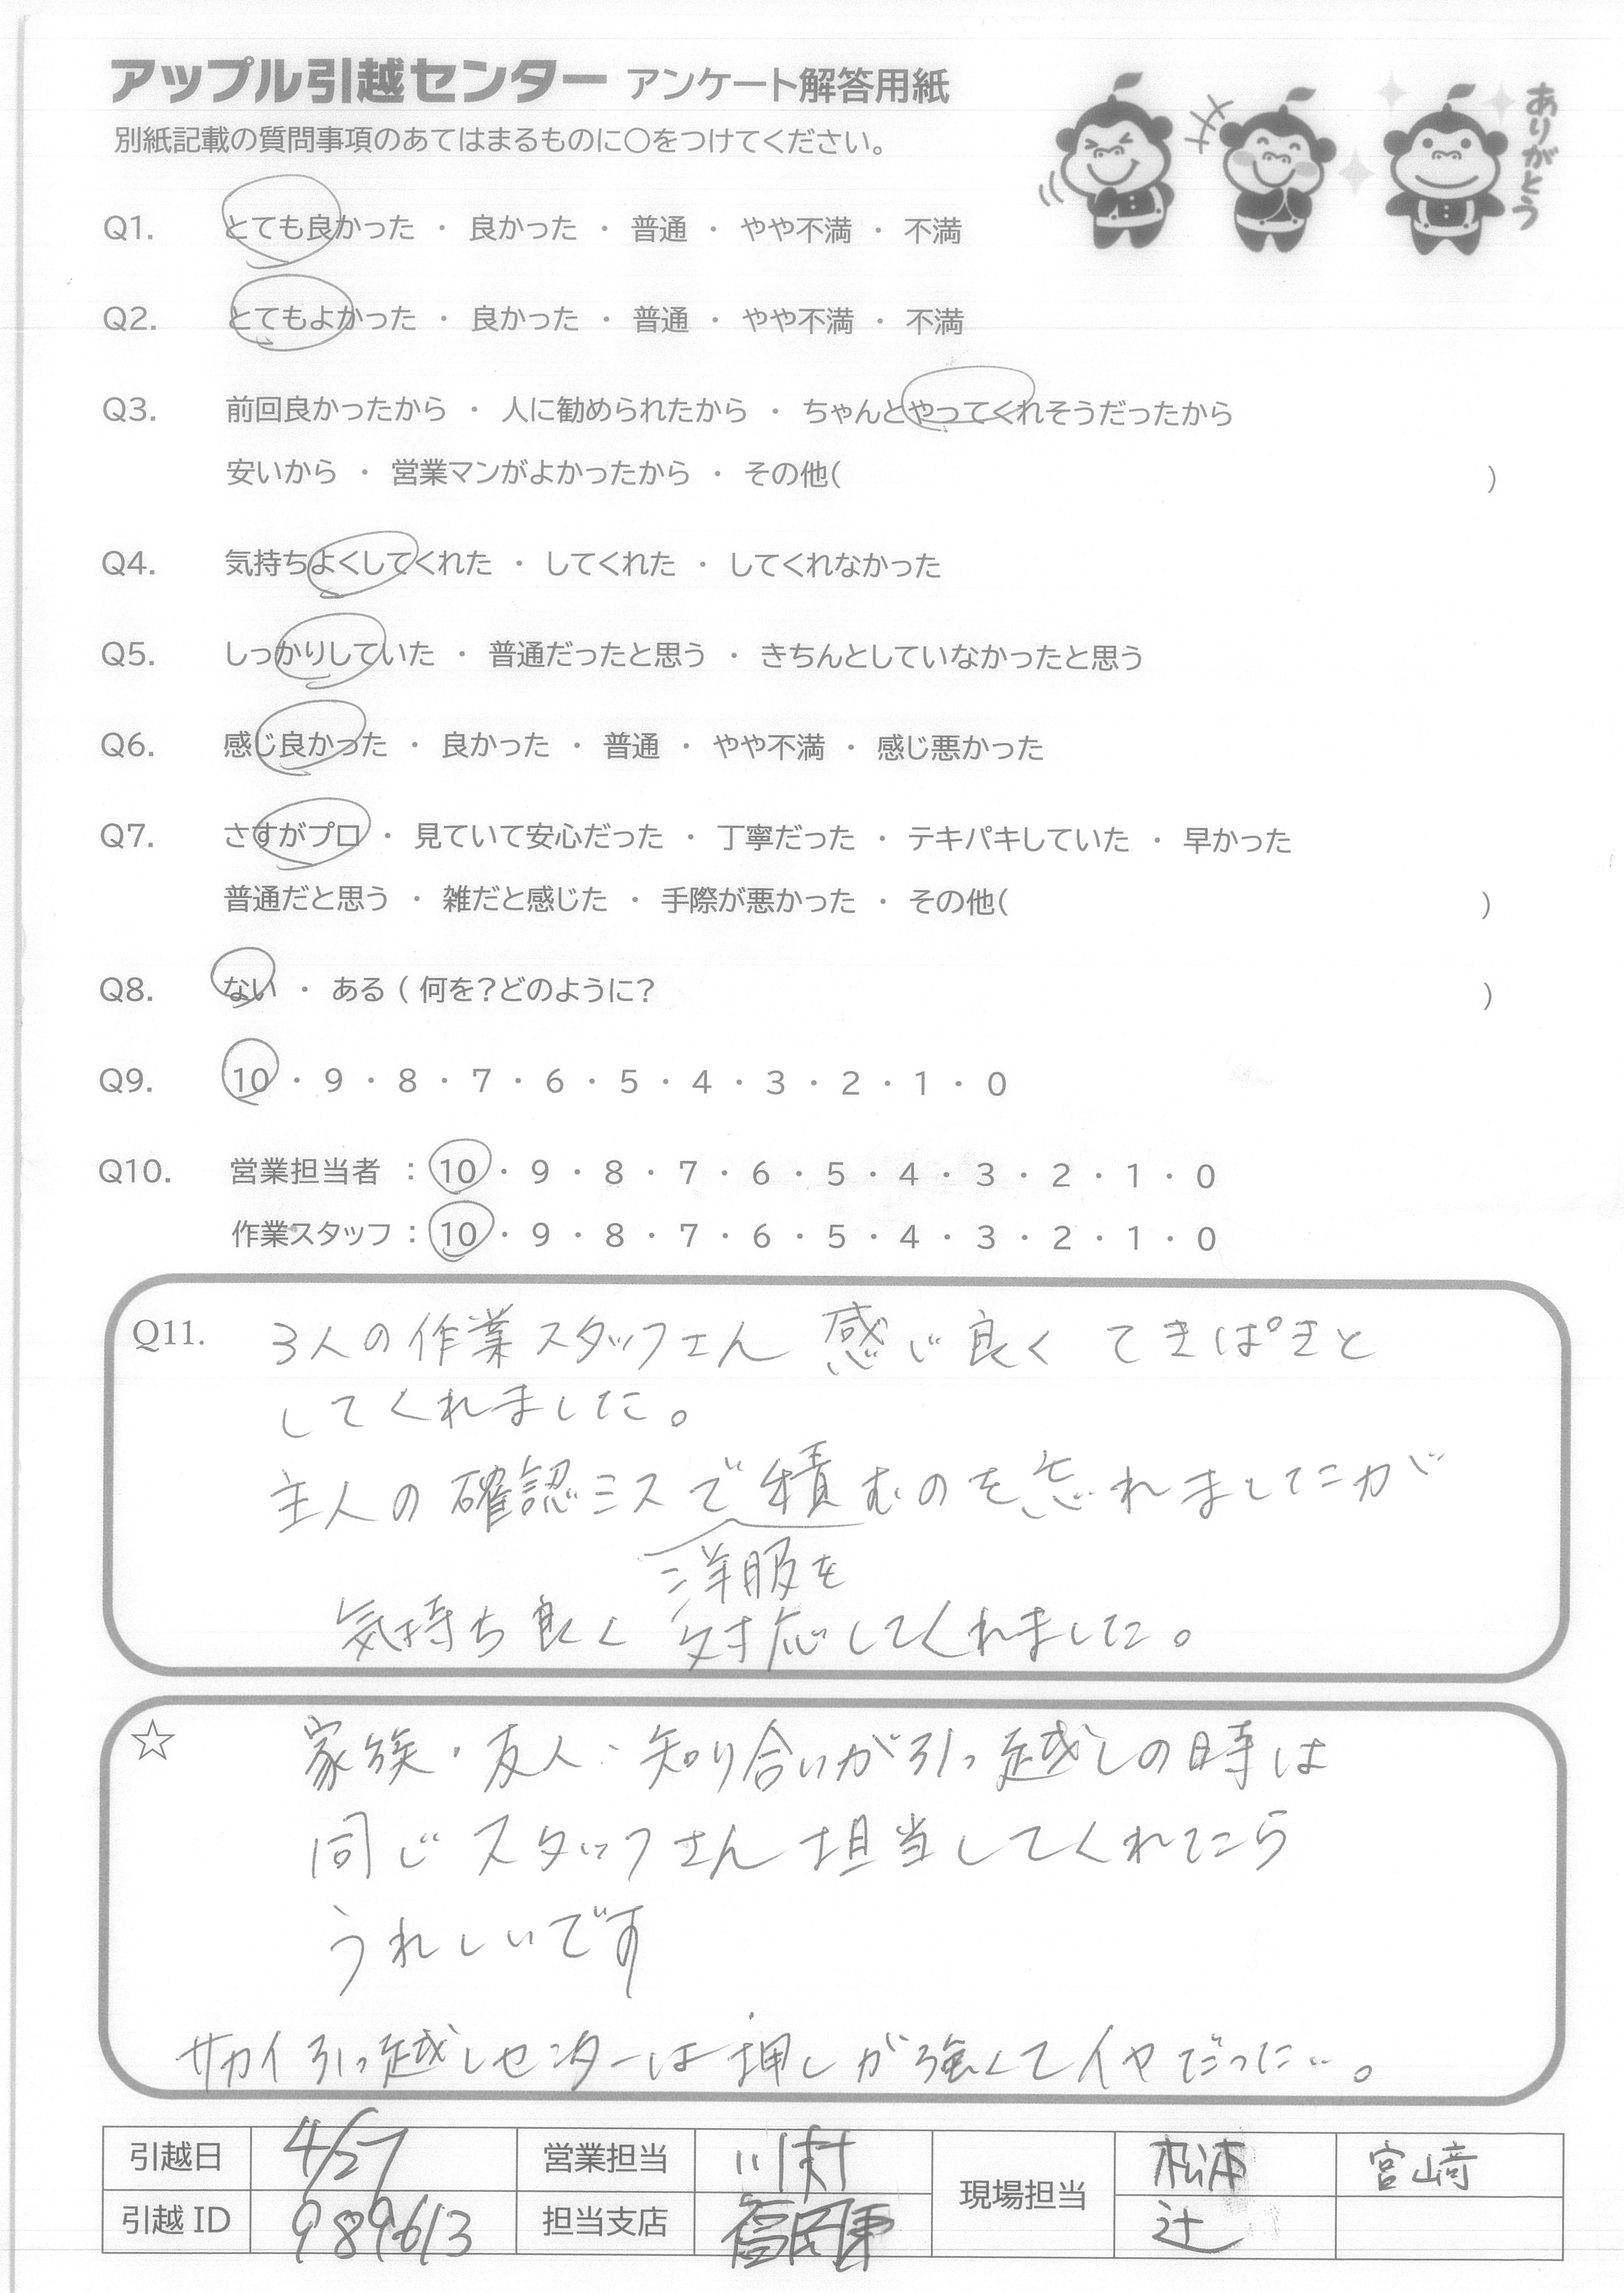 アップル引越センター アンケート解答用紙
別紙記載の質問事項のあてはまるものに○をつけてください。
ありがとう
Q1. とても良かった ・ 良かった ・ 普通 ・ やや不満 ・ 不満
Q2. とてもよかった ・ 良かった ・ 普通 ・ やや不満 ・ 不満
Q3. 前回良かったから ・ 人に勧められたから ・ ちゃんとやってくれそうだったから
安いから ・ 営業マンがよかったから ・ その他( )
Q4. 気持ちよくしてくれた ・ してくれた ・ してくれなかった
Q5. しっかりしていた ・ 普通だったと思う ・ きちんとしていなかったと思う
Q6. 感じ良かった ・ 良かった ・ 普通 ・ やや不満 ・ 感じ悪かった
Q7. さすがプロ ・ 見ていて安心だった ・ 丁寧だった ・ テキパキしていた ・ 早かった
普通だと思う ・ 雑だと感じた ・ 手際が悪かった ・ その他( )
Q8. ない ・ ある ( 何を?どのように? )
Q9. 10 ・ 9 ・ 8 ・ 7 ・ 6 ・ 5 ・ 4 ・ 3 ・ 2 ・ 1 ・ 0
Q10. 営業担当者 : 10 ・ 9 ・ 8 ・ 7 ・ 6 ・ 5 ・ 4 ・ 3 ・ 2 ・ 1 ・ 0
作業スタッフ : 10 ・ 9 ・ 8 ・ 7 ・ 6 ・ 5 ・ 4 ・ 3 ・ 2 ・ 1 ・ 0
Q11. 3人の作業スタッフさん 感じ良く てきぱきと
してくれました。
主人の確認ミスで積むのを忘れましたが
洋服を
気持ち良く 対応してくれました。
☆ 家族・友人・知り合いが引っ越しの時は
同じスタッフさん 担当してくれたら
うれしいです
サカイ引っ越しセンターは押しが強くてイヤだった…。
引越日 4/27 営業担当 川村 現場担当 松浦 宮﨑
引越 ID 989613 担当支店 福岡東 辻